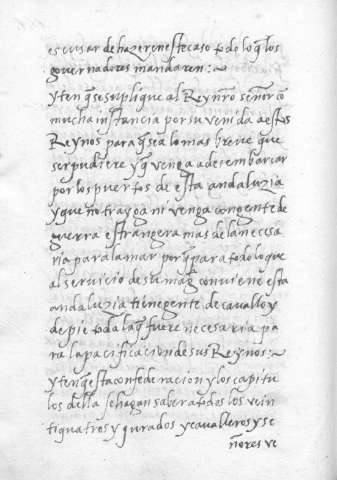 escusar de hazer en este caso todo lo q los
governadores mandaren :~
yten q se suplique al Rey nro señor co
mucha instancia por su venida a estos
Reynos para q sea lo mas breve que
ser pudiere y q venga a desembarcar
por los puertos de esta andaluzia
y que no trayga ni venga con gente de
guerra estrangera mas de la necesa
ria para la mar por q para todo lo que
al servicio de su mag conviene esta
andaluzia tiene gente de cavallo y
de pie toda la q fuere necesaria pa
ra la pacificacion de sus Reynos :~
yten q esta confederacion y los capitu
los della se hagan saber a todos los vein
tiquatros y jurados y cavalleros y se
ñores ve